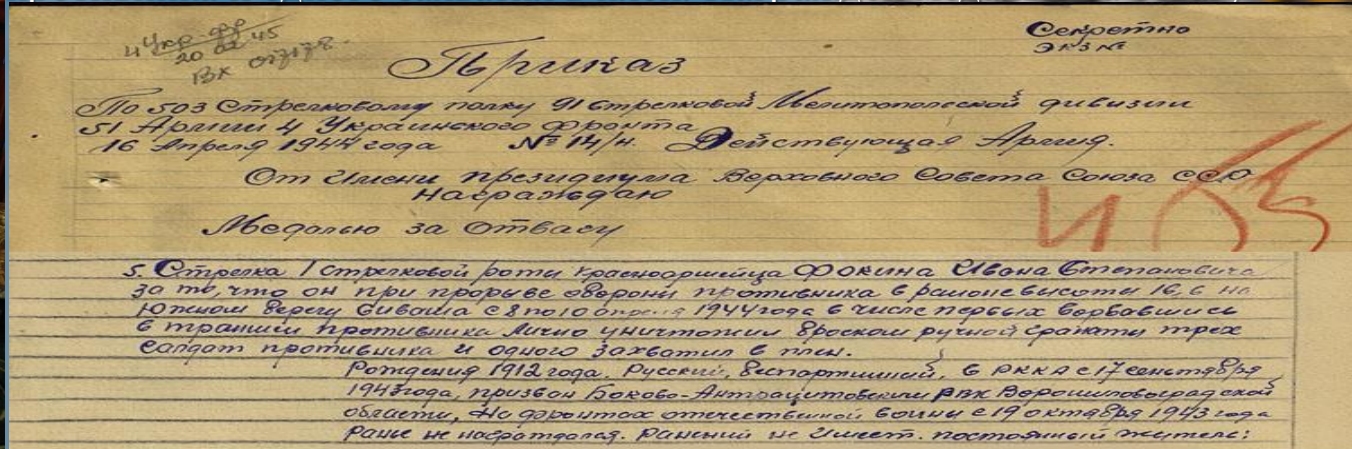 4 Укр. фр
20 02 45
Вх 07178
Секретно
Экз №
Приказ
По 503 Стрелковому полку 91 стрелковой Мелитопольской дивизии
51 Армии 4 Украинского фронта
16 Апреля 1944 года № 14/н. Действующая Армия.
От Имени президиума Верховного Совета Союза ССР
Награждаю
Медалью за Отвагу
5. Стрелка 1 стрелковой роты красноармейца ФОКИНА Ивана Степановича
за то, что он при прорыве обороны противника в районе высоты 16,6 на
Южном берегу Сиваша с 8 по 10 апреля 1944 года в числе первых ворвавшись
в траншеи противника Лично уничтожил броском ручной гранаты трех
солдат противника и одного захватил в плен.
Рождения 1912 года, Русский, беспартийный, в РККА с 17 сентября
1943 года, призван Боково-Антрацитовским РВК Ворошиловградской
области, На фронтах отечественной войны с 19 октября 1943 года
Ранее не награждался. Ранений не Имеет. постоянный житель: